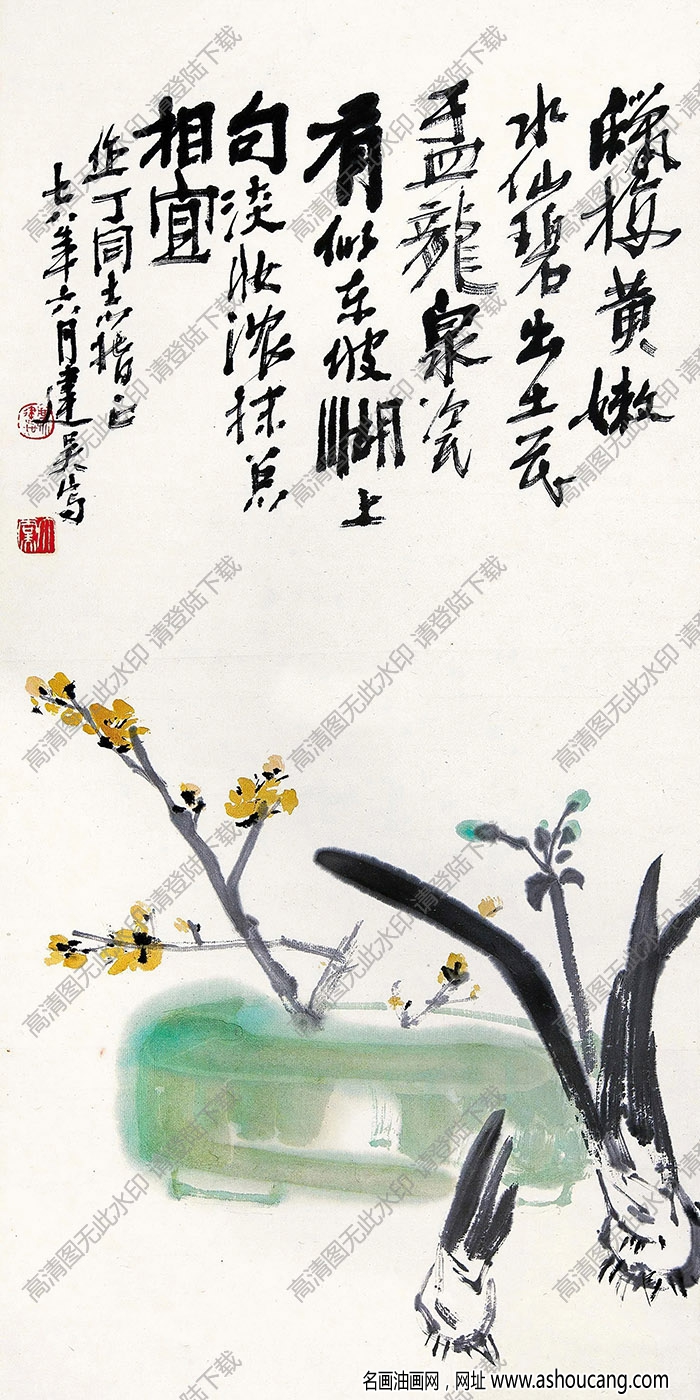 蠟梅黄嫩
水仙碧出土花
盂龍泉瓷
有似东坡湖上
句淡妝浓抹总
相宜
丁同志指正
七八年六月建吴写
名画油画网，网址 www.ashoucang.com
高清图无此水印 请登陆下载